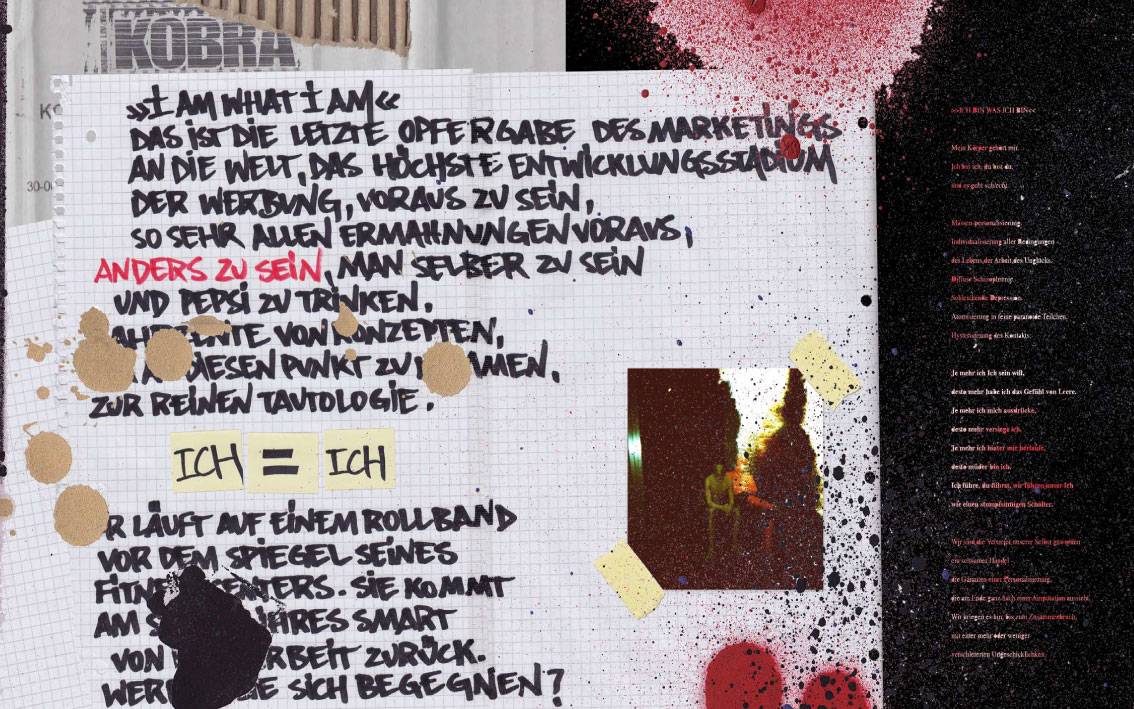 KOBRA
»I AM WHAT I AM«
DAS IST DIE LETZTE OPFERGABE DES MARKETINGS
AN DIE WELT, DAS HÖCHSTE ENTWICKLUNGSSTADIUM
DER WERBUNG, VORAUS ZU SEIN,
SO SEHR ALLEN ERMAHNUNGEN VORAUS,
ANDERS ZU SEIN, MAN SELBER ZU SEIN
UND PEPSI ZU TRINKEN.
VON KONZEPTEN,
DIESEN PUNKT ZU
ZUR REINEN TAUTOLOGIE.
ICH = ICH
LÄUFT AUF EINEM ROLLBAND
VOR DEM SPIEGEL SEINES
SIE KOMMT
AM SMART
VON ZURÜCK.
SICH BEGEGNEN?
>>ICH BIN WAS ICH BIN<<
Mein Körper gehört mir.
Ich bin ich, du bist du,
und es geht schlecht.
Massen-personalisierung.
Individualisierung aller Bedingungen
des Lebens, der Arbeit, des Unglücks.
Diffuse Schizophrenie.
Schleichende Depression.
Atomisierung in feine paranoide Teilchen.
Hysterisierung des Kontakts.
Je mehr ich Ich sein will,
desto mehr habe ich das Gefühl von Leere.
Je mehr ich mich ausdrücke,
desto mehr versiege ich.
Je mehr ich hinter mir herlaufe,
desto müder bin ich.
Ich führe, du führst, wir führen unser Ich
wie einen stumpfsinnigen Schalter.
Wir sind die Vertreter unserer Selbst geworden
ein seltsamer Handel
die Garanten einer Personalisierung,
die am Ende ganz nach einer Amputation aussieht.
Wir kriegen es hin, bis zum Zusammenbruch,
mit einer mehr oder weniger
verschleierten Ungeschicklichkeit.